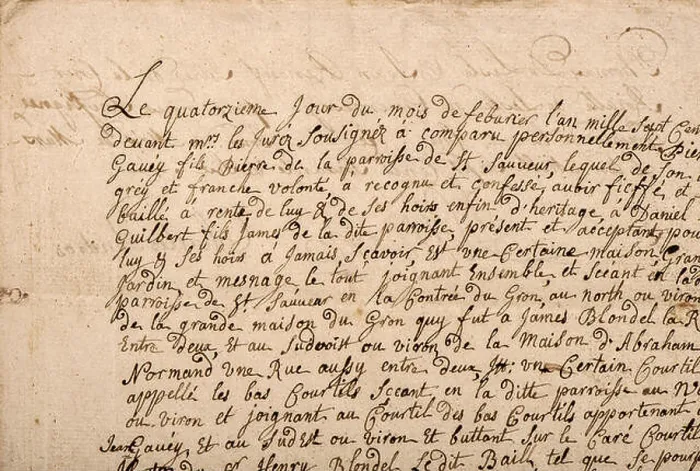 Le quatorzieme Jour du mois de feburier l'an mille sept Cen
devant mrs les Jurez soussignez à comparu personnellement Pie
Gavey fils Pierre de la parroisse de St Sauveur, lequel de son
grey et franche volonté, à recognu et confessé, auoir fieffé et
baillé à rente de luy & de ses hoirs enfin d'heritage, à Daniel
Guilbert fils James de la dite parroisse, présent et acceptant pou
luy & ses hoirs à Jamais, Scavoir, Est vne Certaine maison, Gran
Jardin et mesnage le tout joignant Ensemble, et sceant en la d
parroisse de St Sauveur en la Contrée du Gron, au north ou viron
de la grande maison du Gron quy fut à James Blondel la R
Entre deux, et au sudvoist ou viron de la Maison d'Abraham
Normand vne Rue aussy entre deux, It: vn Certain Courtil
appellé les bas Courtils sceant, en la ditte parroisse au N
ou viron et joignant au Courtil des bas Courtils appartenant
Jean Gavey, Et au sudest ou viron et buttant sur le Caré Courtil
Henry Blondel Ledit Bail tel que se pour